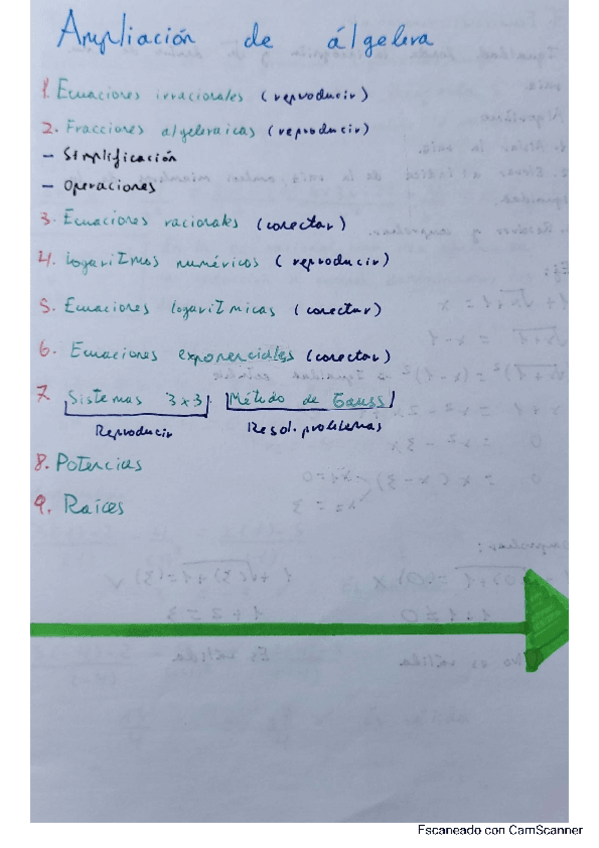 Ampliación de álgebra
1. Ecuaciones irracionales (reproducir)
2. Fracciones algebraicas (reproducir)
- Simplificación
- Operaciones
3. Ecuaciones racionales (conectar)
4. logaritmos numéricos (reproducir)
5. Ecuaciones logarítmicas (conectar)
6. Ecuaciones exponenciales (conectar)
7. Sistemas 3x3. Método de Gauss
Reproducir Resol. problemas
8. Potencias
9. Raíces
Escaneado con CamScanner